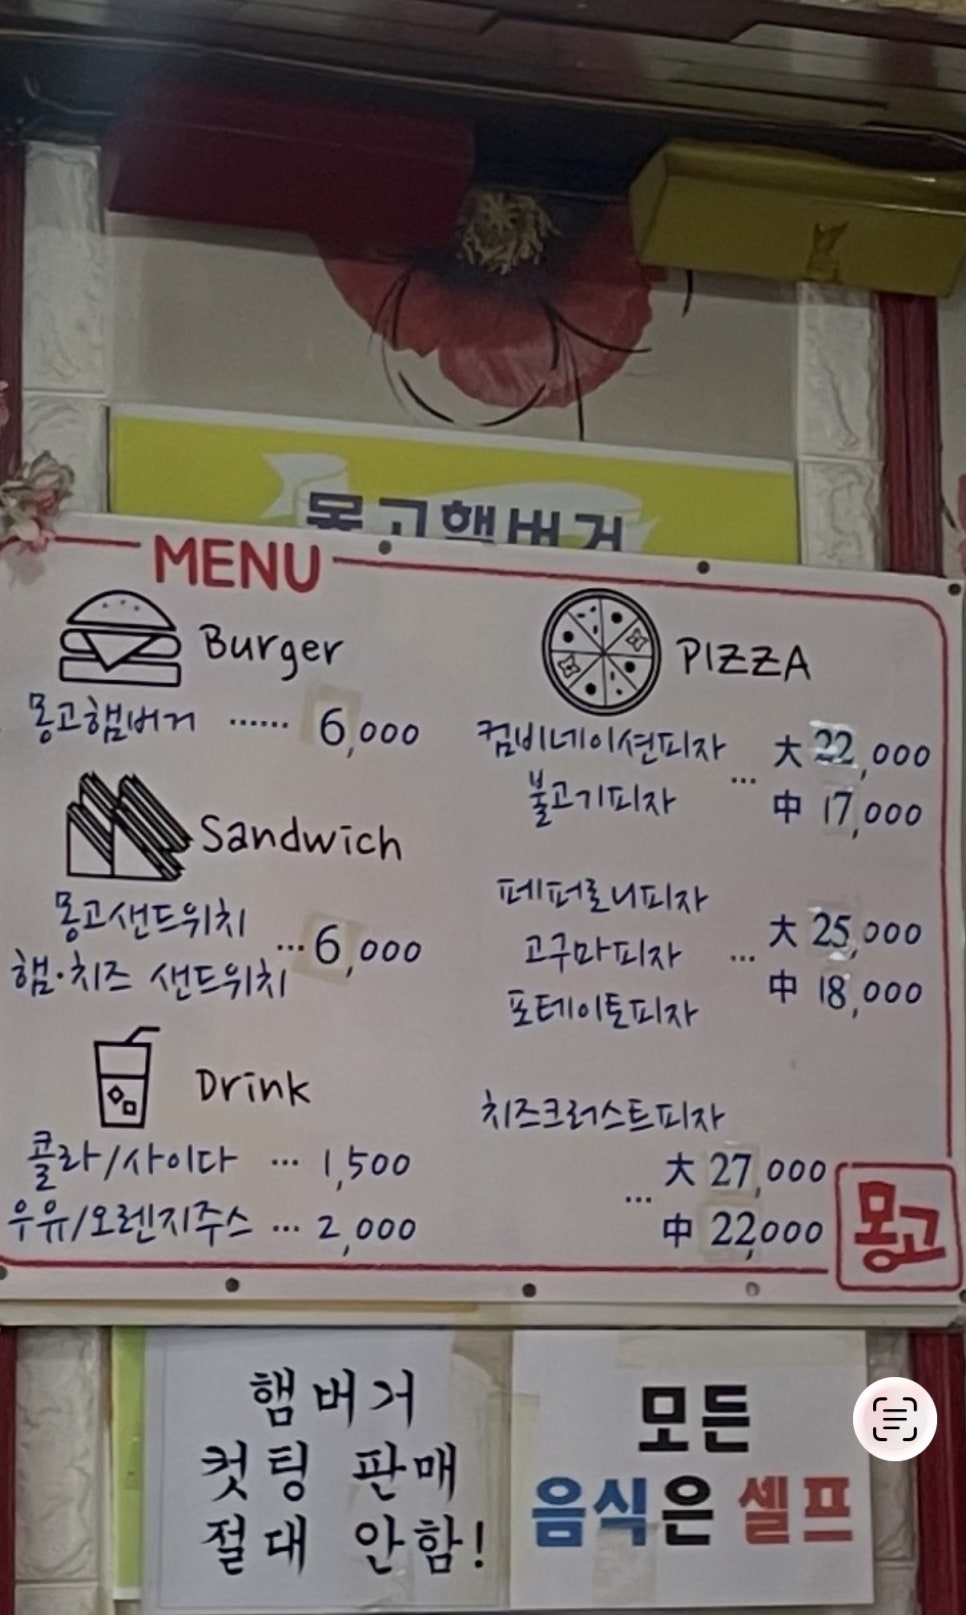 몽고햄버거
MENU
Burger
몽고햄버거 ...... 6,000
Sandwich
몽고샌드위치
햄·치즈 샌드위치 ... 6,000
Drink
콜라/사이다 ... 1,500
우유/오렌지주스 ... 2,000
PIZZA
컴비네이션피자
불고기피자
... 大 22,000
中 17,000
페퍼로니피자
고구마피자
포테이토피자
... 大 25,000
中 18,000
치즈크러스트피자
... 大 27,000
中 22,000
몽고
햄버거
컷팅 판매
절대 안함!
모든
음식은 셀프